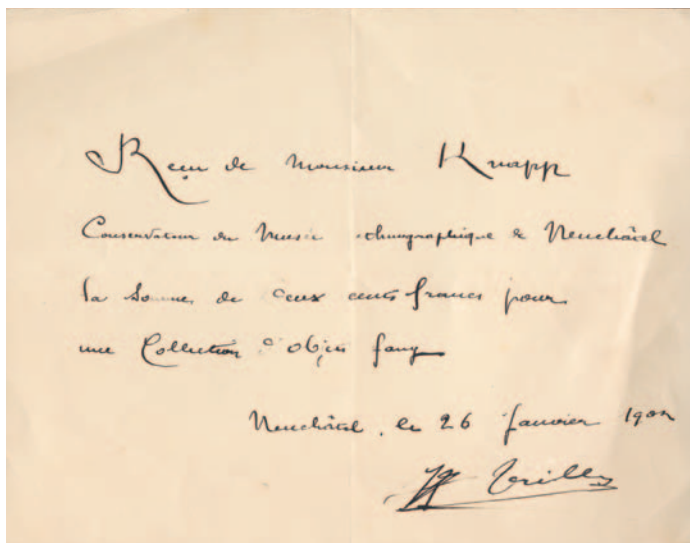 Reçu de Monsieur Knapp
Conservateur du Musée ethnographique de Neuchâtel
la Somme de deux cents francs pour
une Collection d'objets fang
Neuchâtel, le 26 Janvier
Trilles